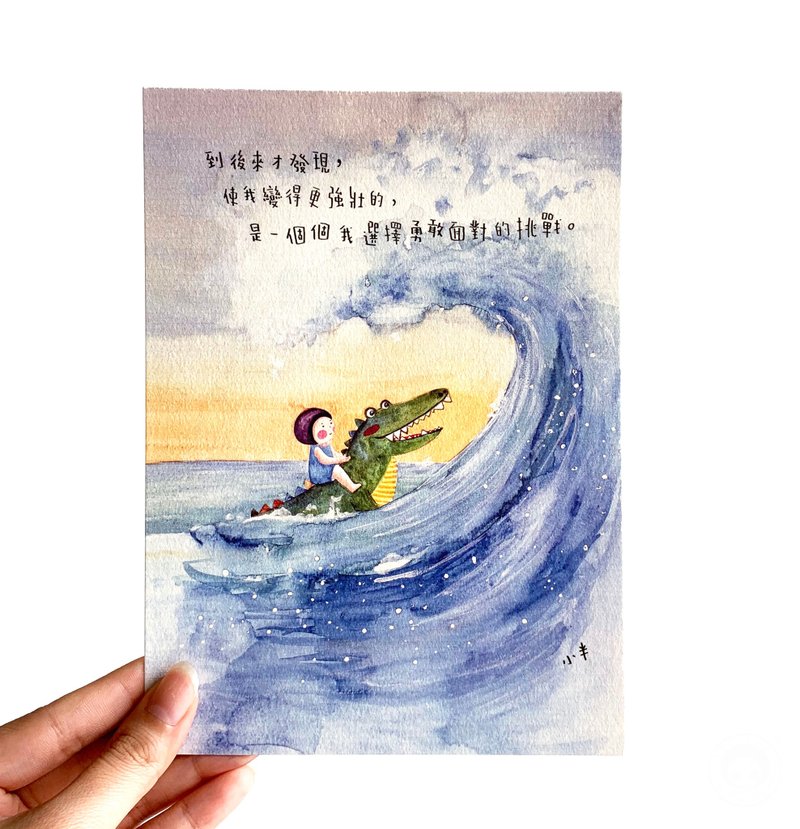 到後來才發現，
使我變得更強壯的，
是一個個我選擇勇敢面對的挑戰。
小羊